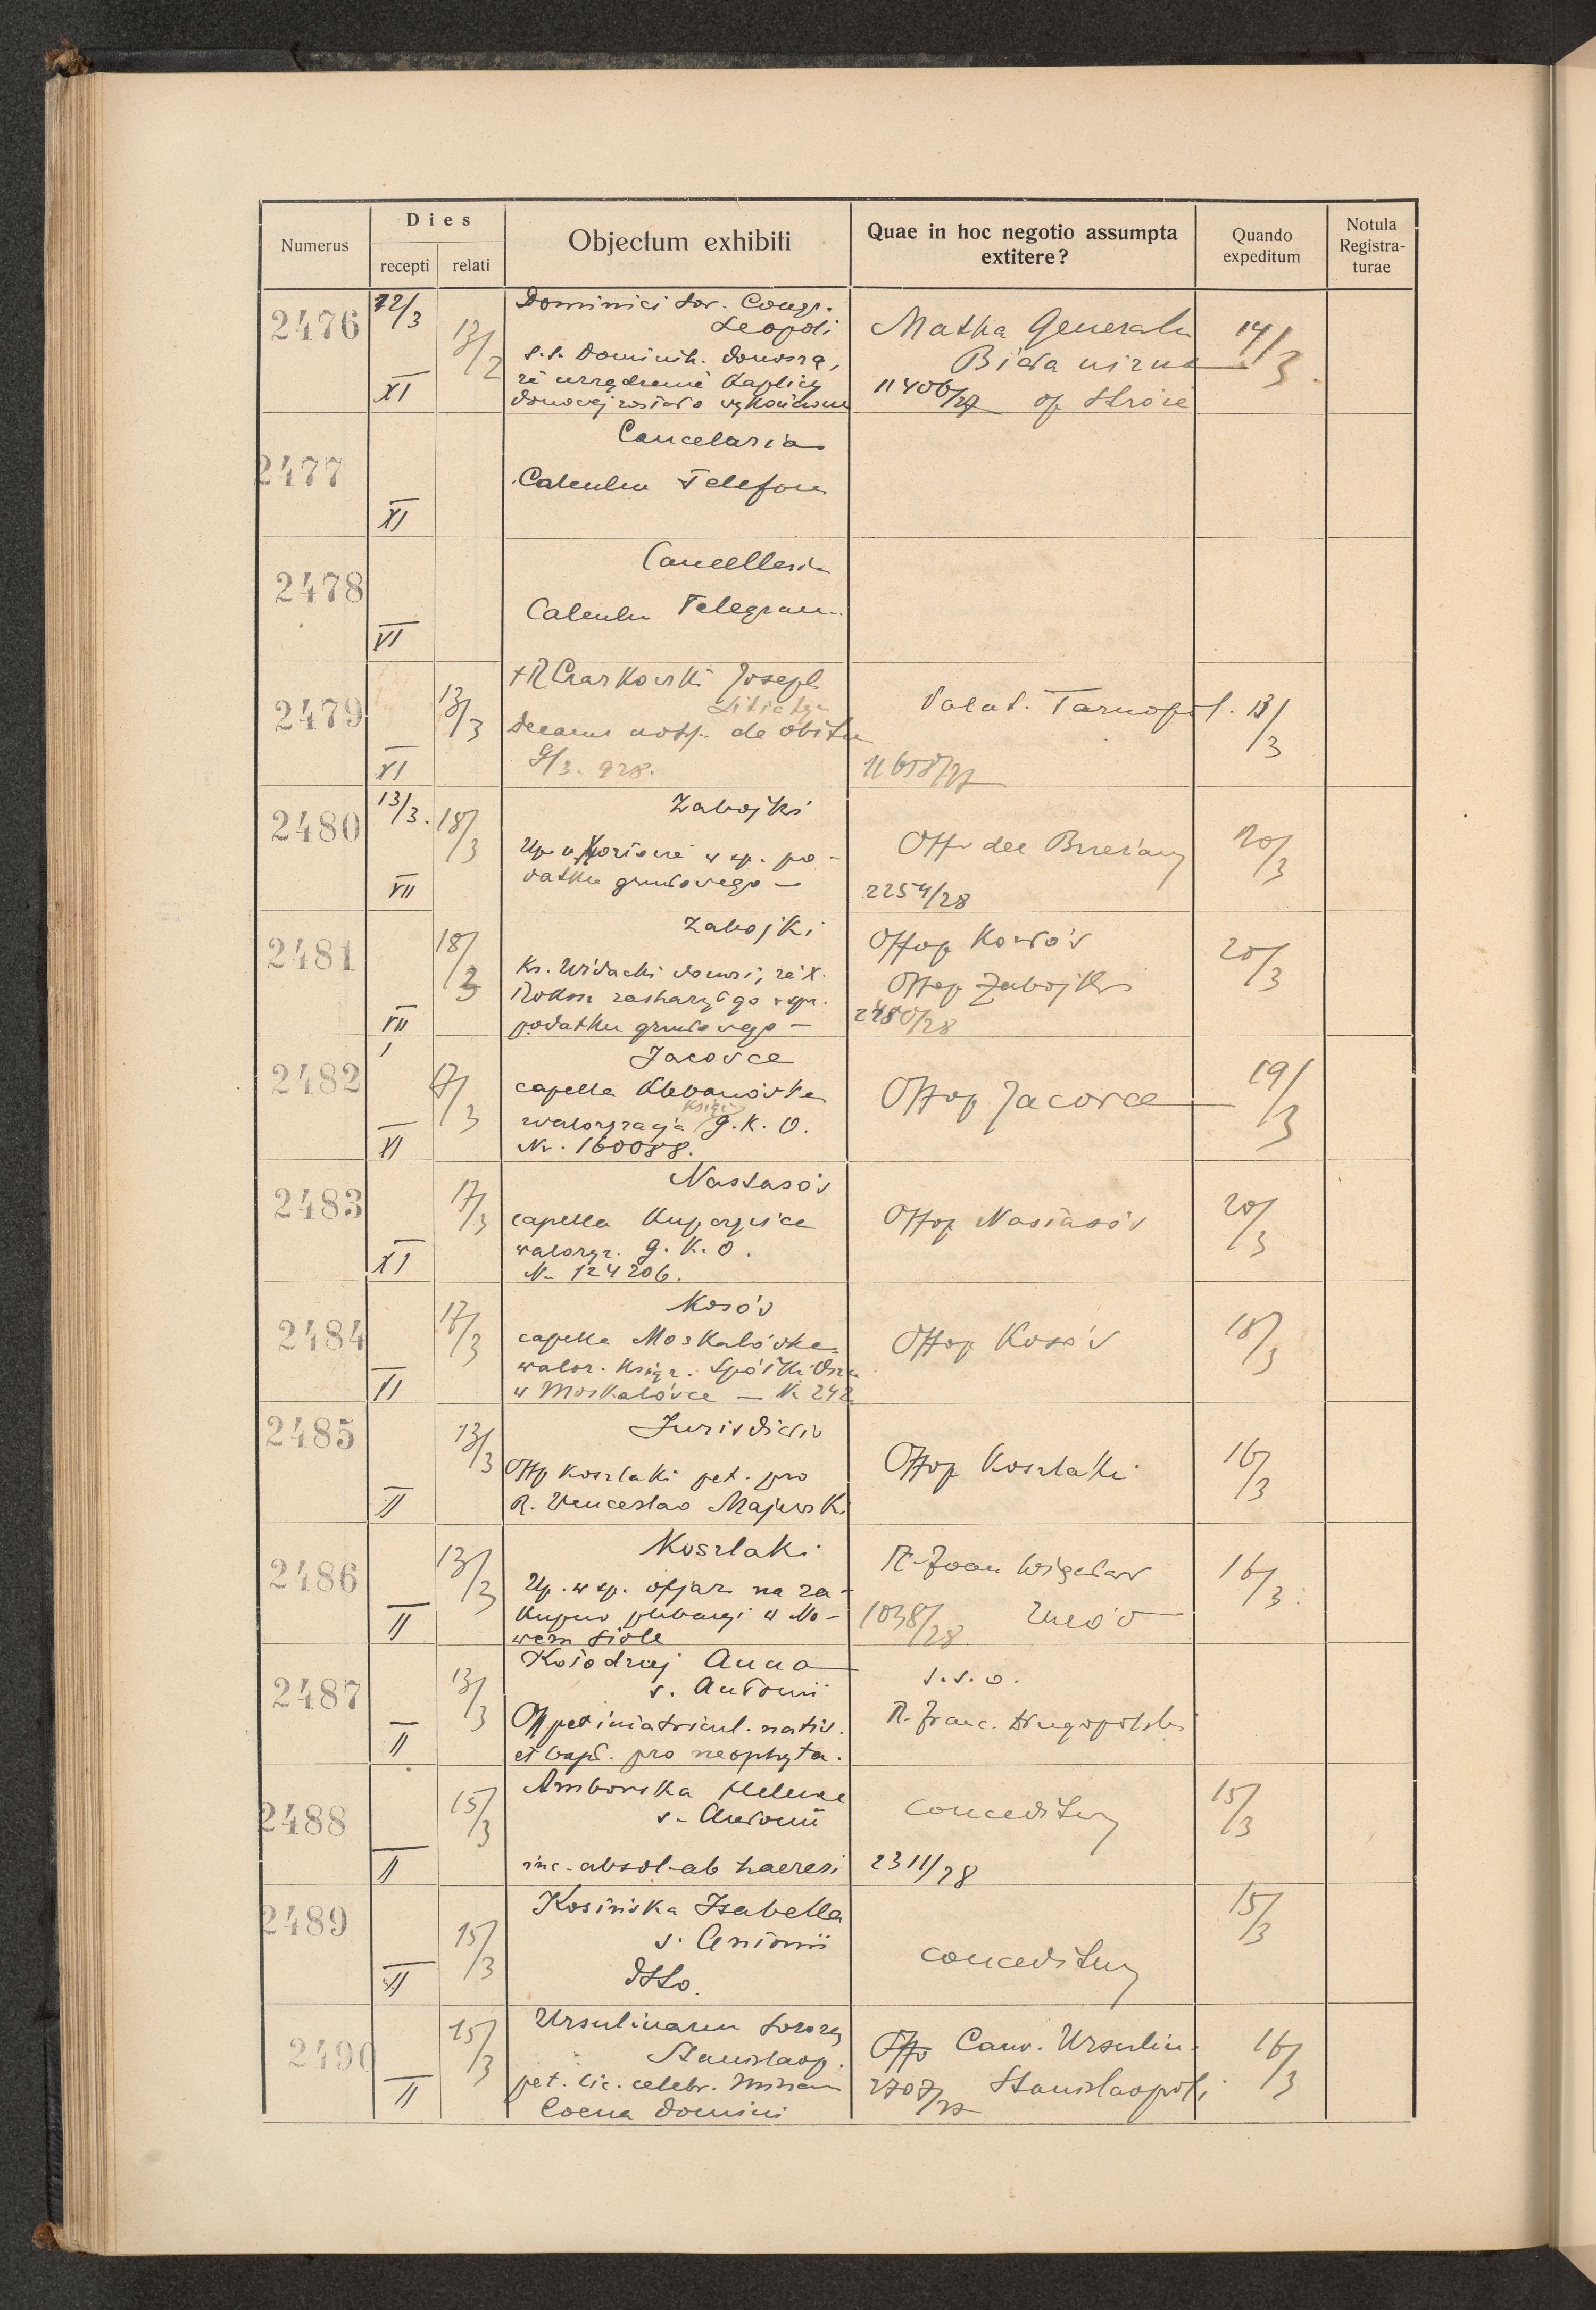 Numerus
Dies
recepti
relati
Objectum exhibiti
Quae in hoc negotio assumpta
extitere?
Quando
expeditum
Notula
Registra-
turae
2476
12/3
13/2
XI
Dominici Sor. Congr.
Leopoli
s.s. Dominik. donoszą,
że urządzenie Kaplicy
domowej zostało wykończone
Matka Generalna
Biała niżna
11406/27 op Stróże
14/3
2477
XI
Cancelaria
Calculu Telefon
2478
VI
Cancellaria
Calculu Telegram
2479
13/3
XI
+R Czarkowski Joseph
Litiatyn
Decanus notf. de obitu
9/3. 928.
Valat. Tarnopol.
11658/27
13/3
2480
13/3.
18/3
VII
Zabojki
Up. w sp. po-
datku gruntowego —
Offo dec Brzeżany
2254/28
20/3
2481
18/3
VII
Zabojki
Ks. Widacki donosi, że X.
zaskarżył go w spr.
podatku gruntowego —
Offop Kozłów
Offop Zabojki
2480/28
20/3
2482
17/3
XI
Jacowce
capella Klebanówka
Książ
waloryzacja G. K. O.
Nr. 160088.
Offop Jacowce
19/3
2483
17/3
XI
Nastasów
capella Kupczyńce
waloryz. G. K. O.
N- 124206.
Offop Nastasów
20/3
2484
17/3
VI
Kosów
capella Moskalówka
walor. Książ. Spółki Osz
w Moskalówce — N. 242
Offop Kosów
18/3
2485
13/3
II
Jurisdictio
Offp Koszlaki pet. pro
R. Venceslao Majewski
Offop Koszlaki
16/3
2486
13/3
II
Koszlaki
Up. w sp. ofiar na za-
kupno plebanji w No-
wem Siole
R. Joan
1038/28
16/3.
2487
13/3
II
Kołodziej Anna
s. Antonii
Off pet imatricul. nativ.
et bapt. pro neophyta.
s. s. o.
R. Franc. Długopolski
2488
15/3
II
Amborska Helena
s. Antonii
inc. absol. ab haeresi
conceditur
2311/28
15/3
2489
15/3
II
Kosińska Isabella
s. Antonii
dtto.
conceditur
15/3
2490
15/3
II
Ursulinarum Soror
Stanislaop.
pet. lic. celebr. Missam
Coena Domini
Offo Conv. Ursulin.
2707/27 Stanislaopoli
16/3